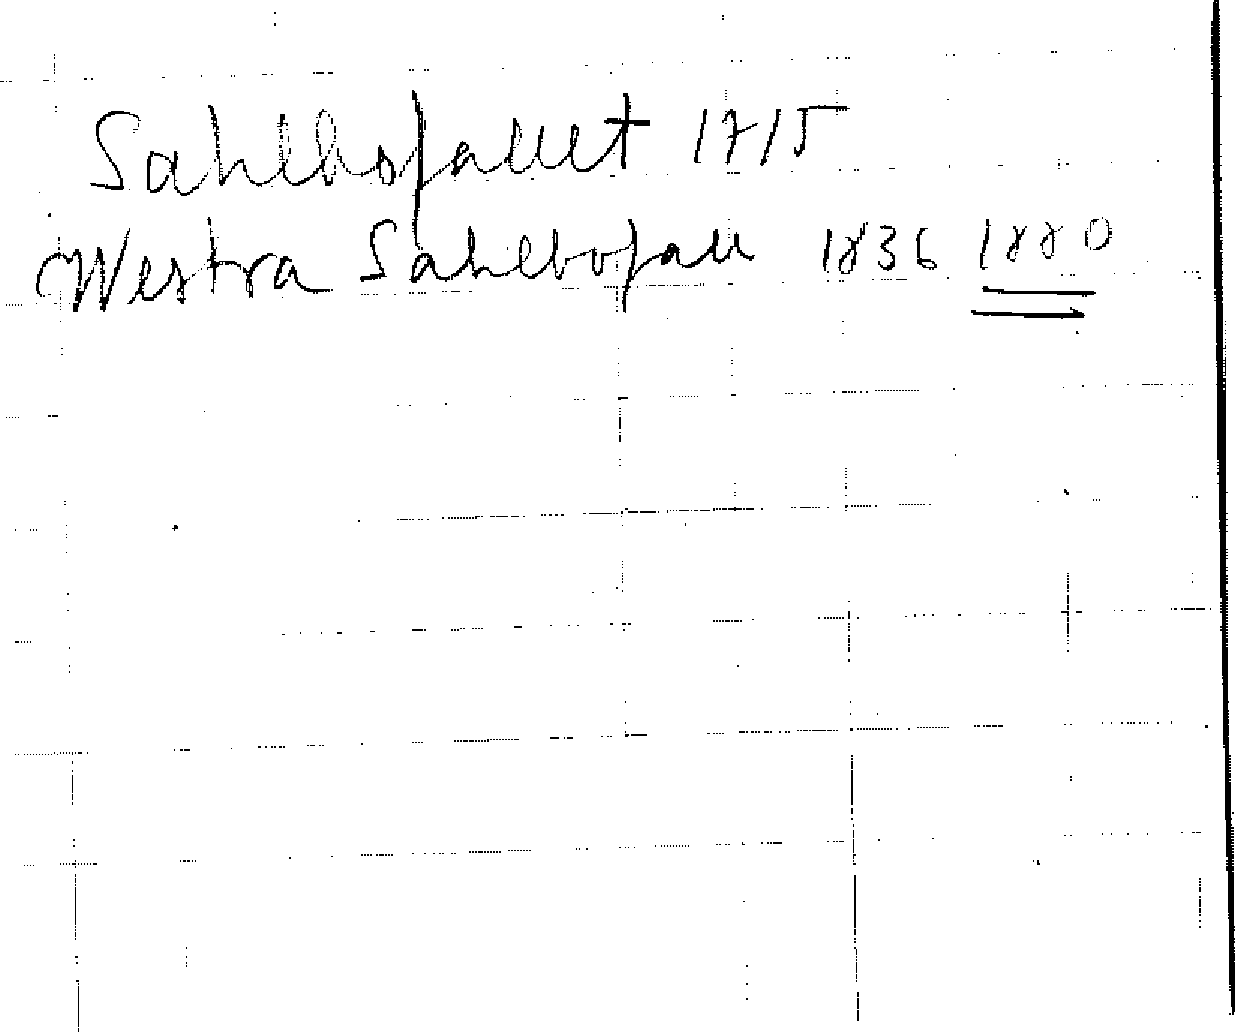 Sahlbofallet 1715
Westra Sahlbofall 1836 1880